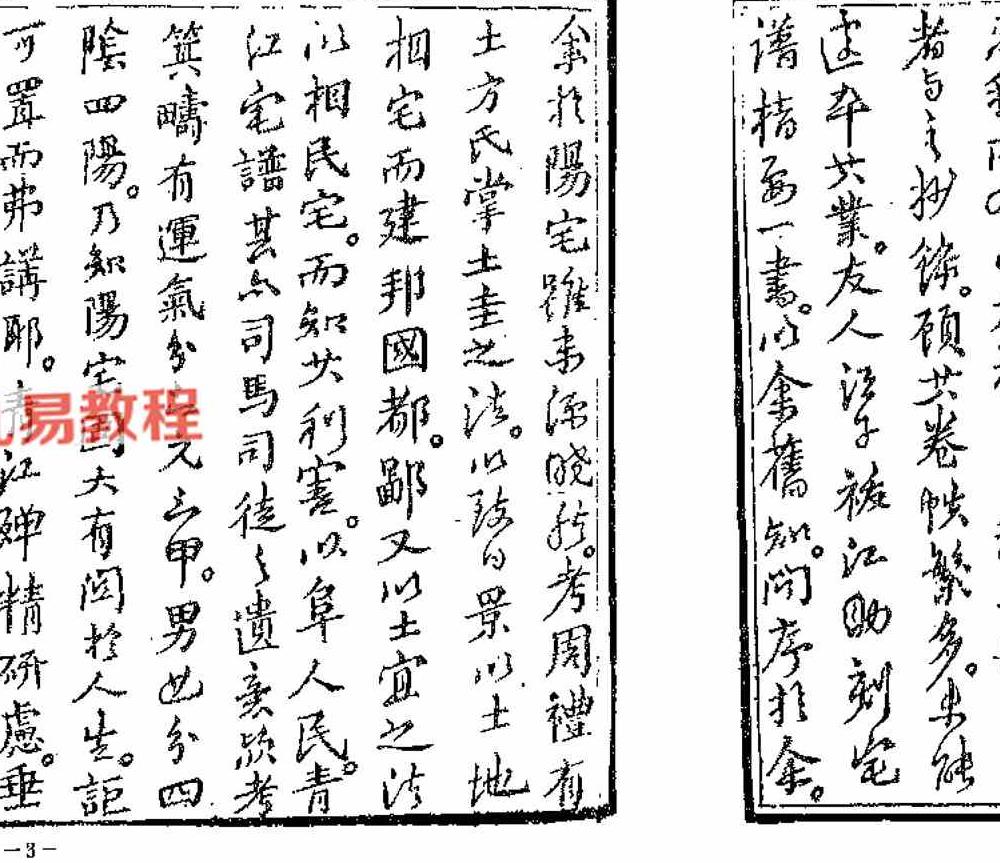 者与之抄錄。顧其卷帙繁多。未能
遂卒其業。友人江助刻宅
譜指要一書。以余舊知。問序於余。
余於陽宅雖未深曉然。考周禮有
土方氏掌土圭之法。以致日景以土地
相宅而建邦國都。鄙又以土宜之法
以相民宅。而知其利害。以阜人民。青
江宅譜其亦司馬司徒之遺意歟考
箕疇有運氣分元三甲。男女分四
陰四陽。乃知陽宅固大有関於人生。詎
可置而弗講耶。青江殫精研慮。垂
易教程
-3-